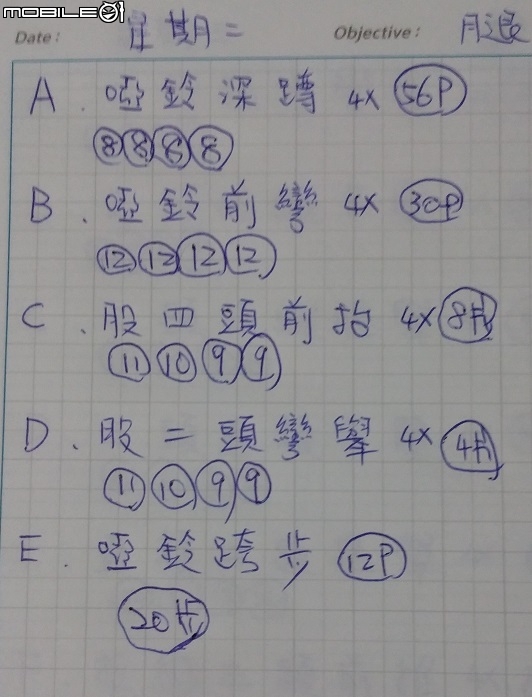 MOBILE01
Date: 星期二 Objective: 月退
A. 啞鈴深蹲 4x 56P
8 8 8 8
B. 啞鈴前彎 4x 30P
12 12 12 12
C. 股四頭前抬 4x 8片
11 10 9 9
D. 股二頭彎舉 4x 4片
11 10 9 9
E. 啞鈴跨步 12P
20步